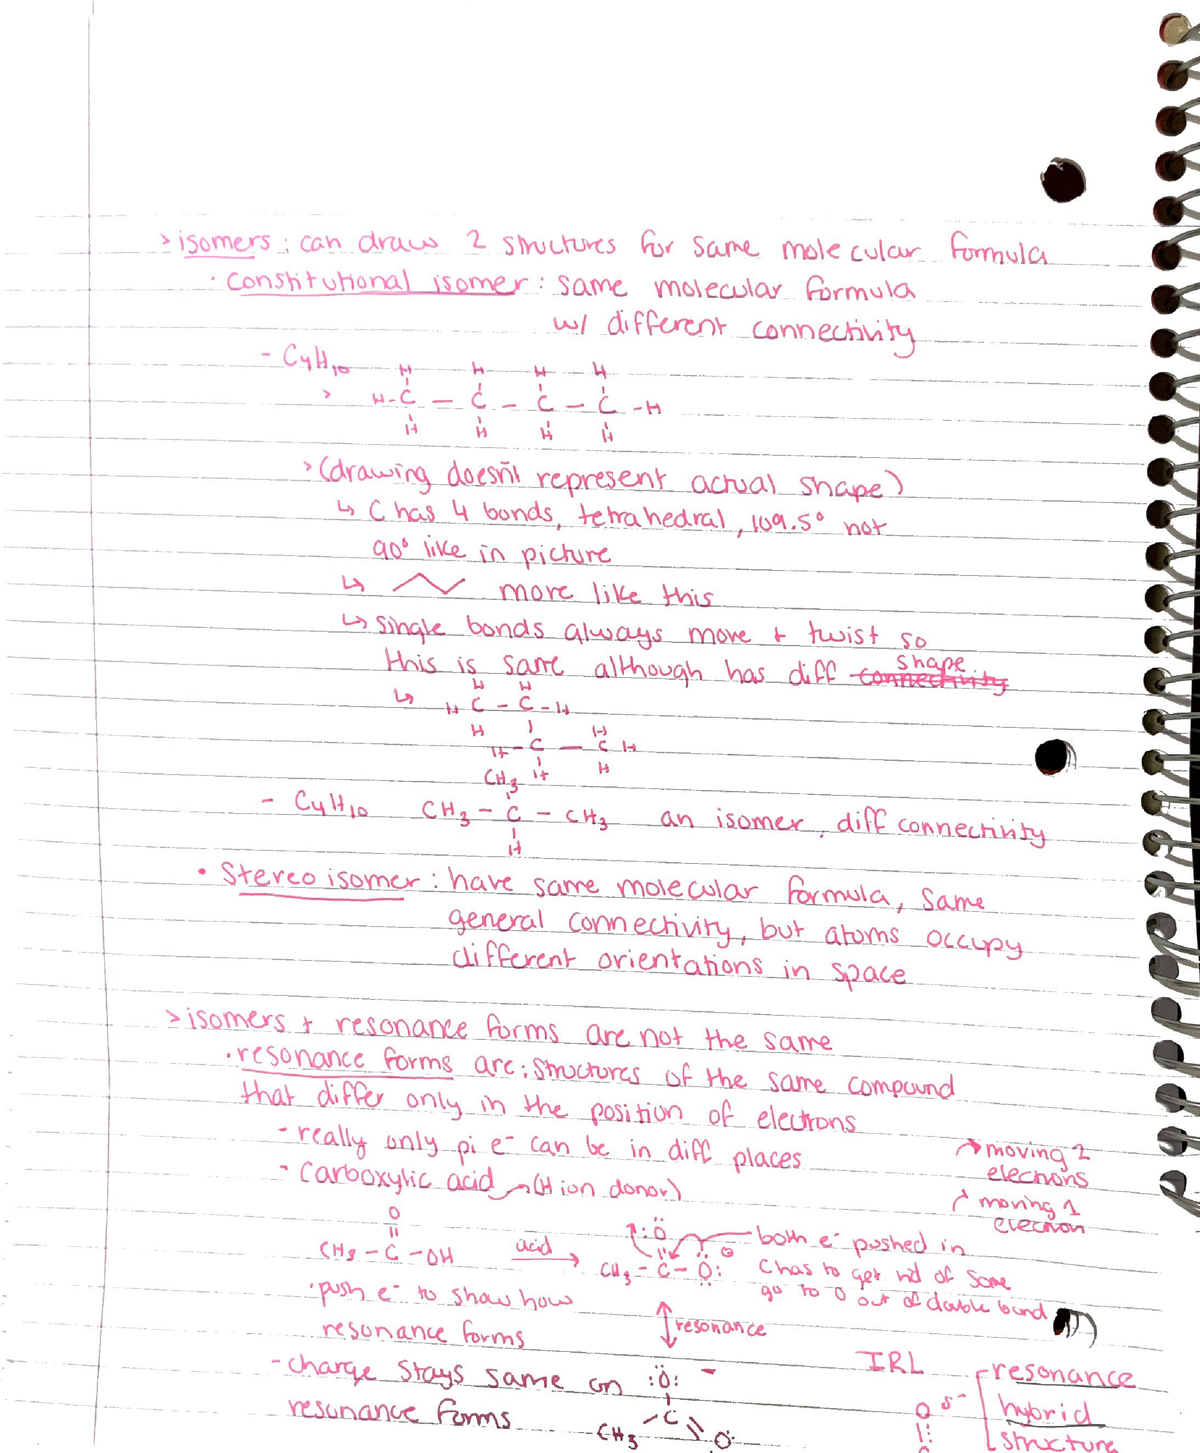 > isomers : can draw 2 structures for same molecular formula
· constitutional isomer : same molecular formula
w/ different connectivity
- C4H10
H H H H
> H-C - C - C - C -H
H H H H
> (drawing doesn't represent actual shape)
↳ C has 4 bonds, tetrahedral, 109.5° not
90° like in picture
↳ more like this
↳ single bonds always move + twist so
shape
this is same although has diff connectivity
H H
↳ H C - C - H
H H
H - C - C H
H H
CH3
- C4H10 CH3 - C - CH3 an isomer, diff connectivity
H
• Stereoisomer : have same molecular formula, same
general connectivity, but atoms occupy
different orientations in space
> isomers + resonance forms are not the same
· resonance forms are : structures of the same compound
that differ only in the position of electrons
- really only pi e- can be in diff places
moving 2
electrons
- Carboxylic acid → (H ion donor)
moving 1
electron
O
CH3 - C - OH acid →
:Ö
CH3 - C - Ö: ⊖
both e- pushed in
C has to get rid of some
go to O out of double bond
· push e- to show how
resonance forms
resonance
- charge stays same on
resonance forms
:Ö: -
C
CH3 O
IRL
resonance
hybrid
structure
O δ-